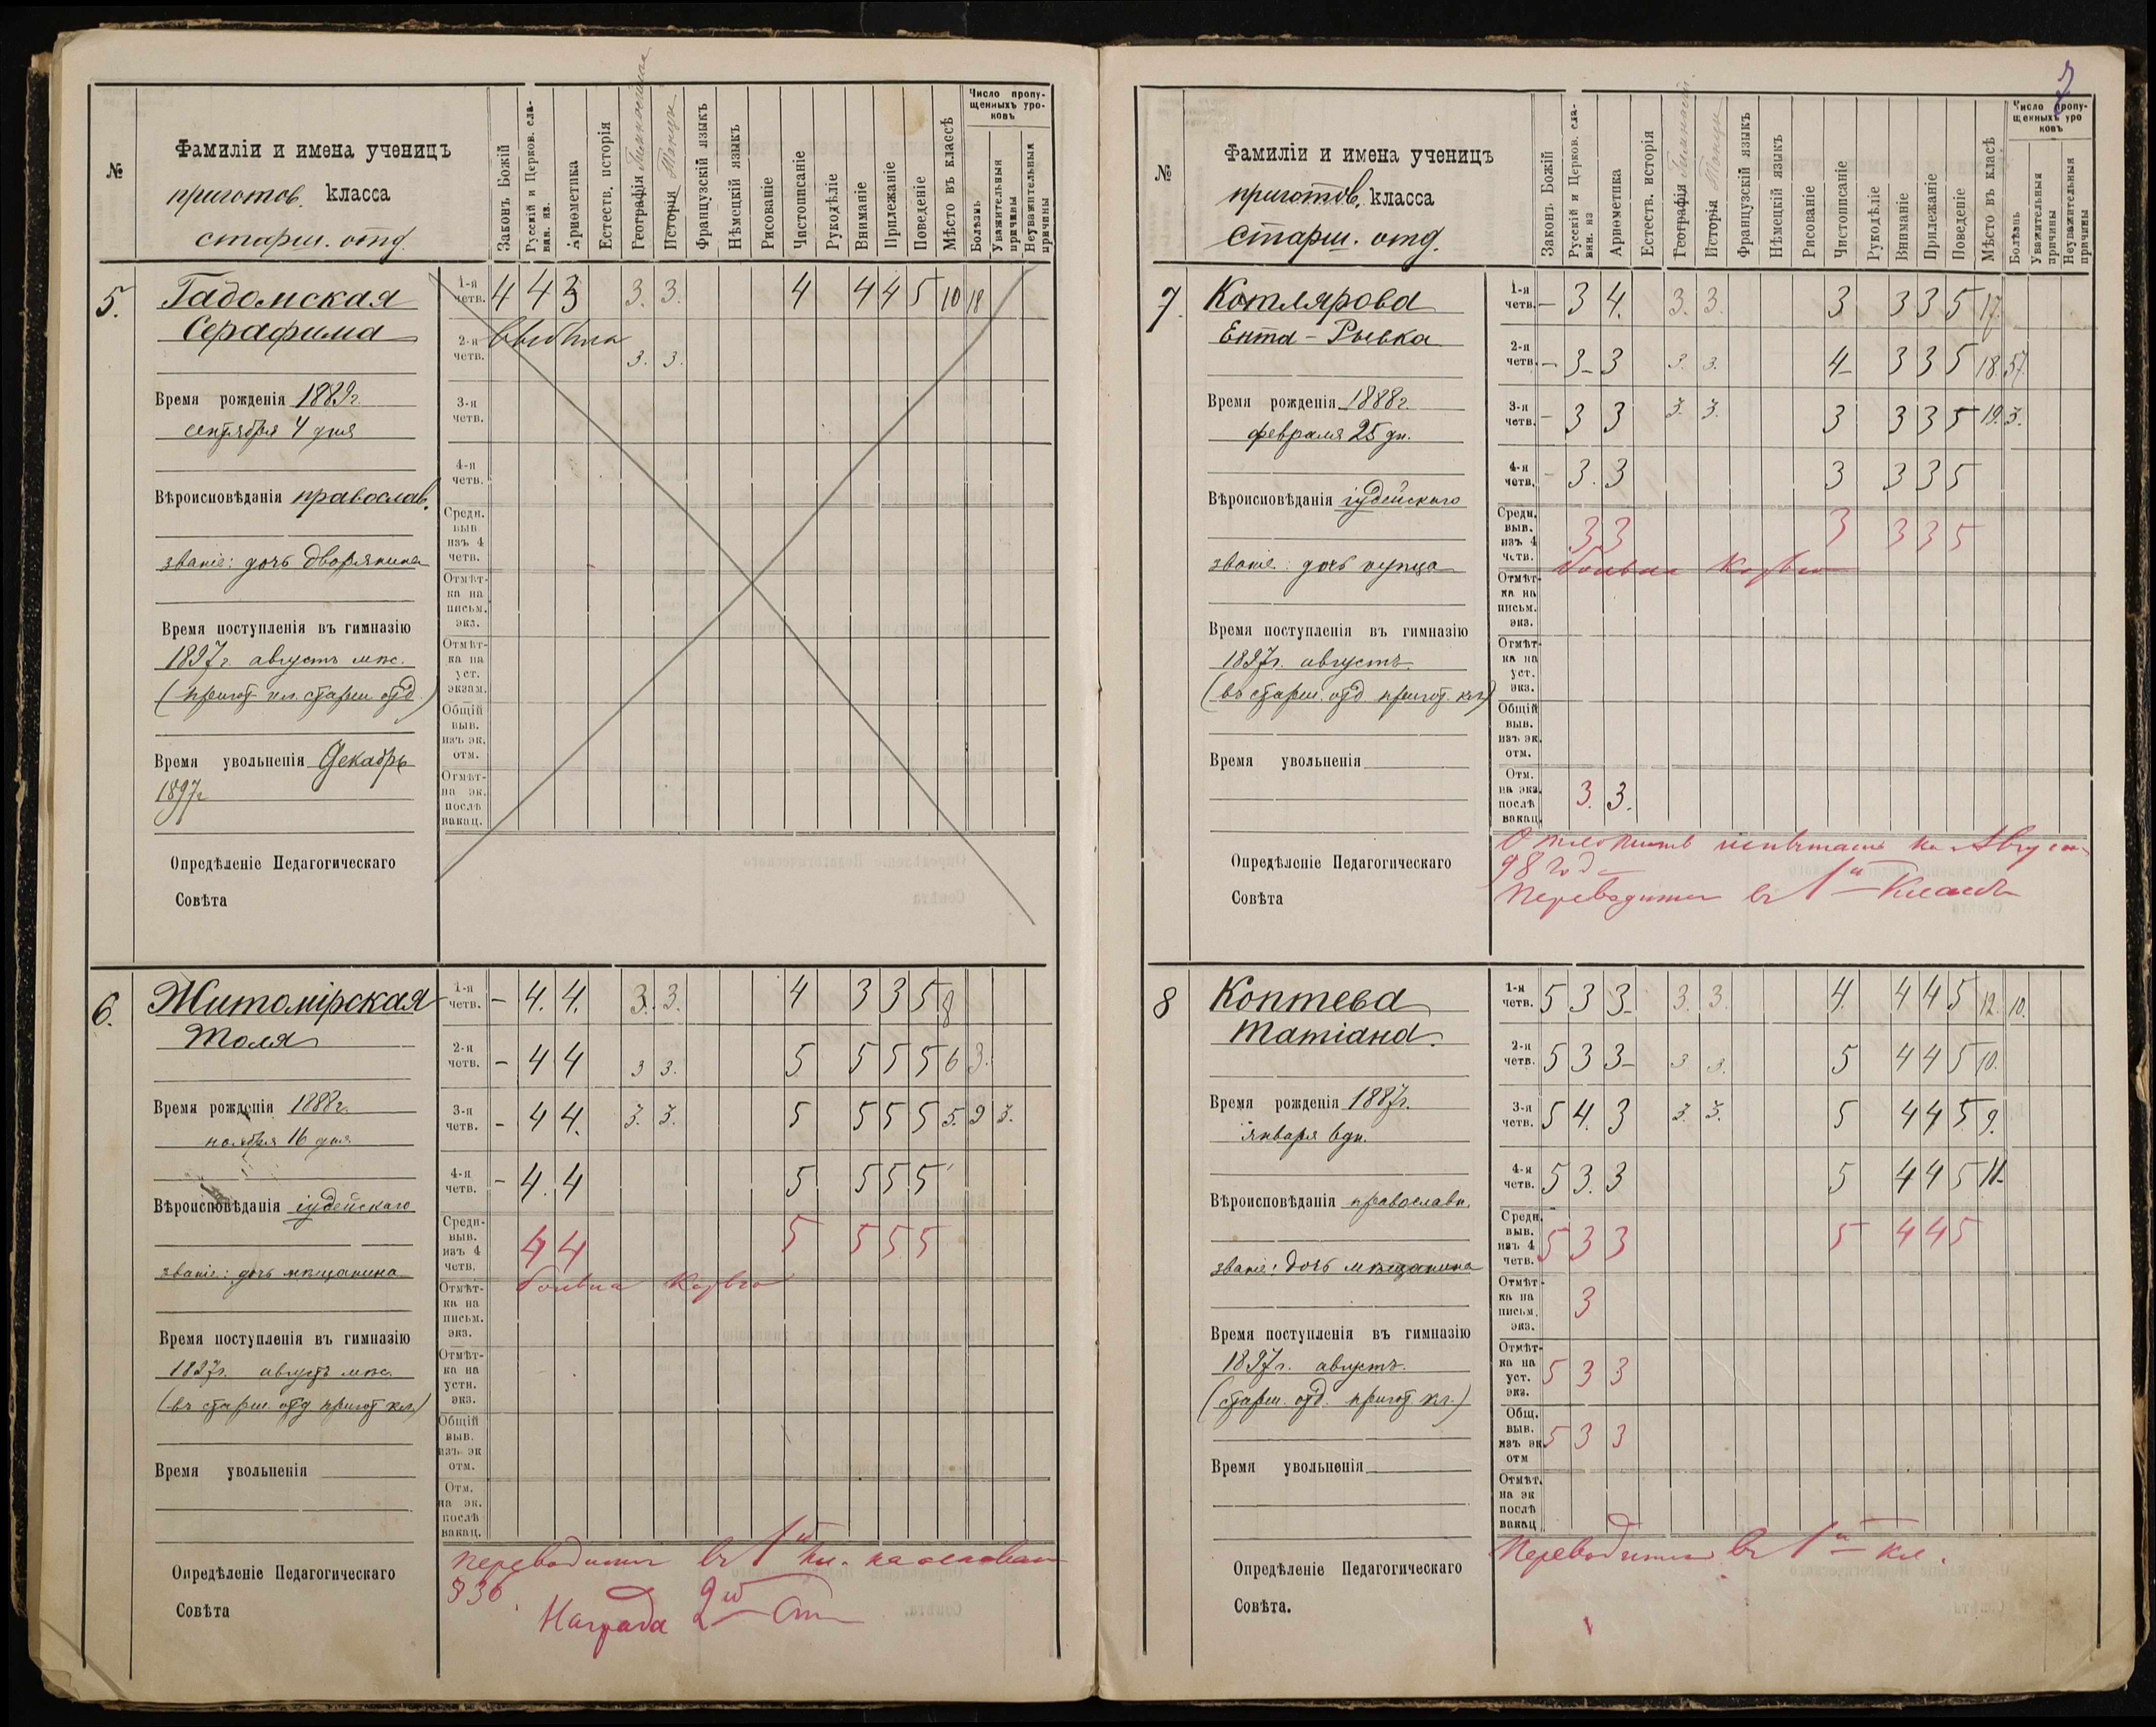 №
Фамиліи и имена ученицъ
приготов. класса
старш. отд.
Законъ Божій
Русскій и Церков. сла-
вян. яз.
Ариѳметика
Естеств. исторія
Географія
Исторія Танцы
Французскій языкъ
Нѣмецкій языкъ
Рисованіе
Чистописаніе
Рукодѣліе
Вниманіе
Прилежаніе
Поведеніе
Мѣсто въ классѣ
Число пропу-
щенныхъ уро-
ковъ
Болѣзнь
Уважительныя
причины
Неуважительныя
причины
5.
Гадомская
Серафима
Время рожденія 1889г.
сентября 4 дня
Вѣроисповѣданія православ.
званіе: дочь дворянина
Время поступленія въ гимназію
1897г. августъ мѣс.
(пригот. кл. старш. отд.)
Время увольненія Декабрь
1897г.
Опредѣленіе Педагогическаго
Совѣта
1-я
четв. 4 4 3 3. 3. 4 4 4 5 10 18
2-я
четв. Выбыла 3. 3.
3-я
четв.
4-я
четв.
Средн.
выв
изъ 4
четв.
Отмѣт-
ка на
письм.
экз.
Отмѣт-
ка на
уст.
экзам.
Общій
выв.
изъ эк.
отм.
Отмѣт-
на эк.
послѣ
вакац.
6.
Житомірская
Толя
Время рожденія 1888г.
ноября 16 дня
Вѣроисповѣданія іудейскаго
званіе: дочь мѣщанина
Время поступленія въ гимназію
1897г. августъ мѣс.
(въ старш. отд. пригот. кл.)
Время увольненія
Опредѣленіе Педагогическаго
Совѣта
1-я
четв. – 4. 4. 3. 3. 4 3 3 5 8
2-я
четв. – 4 4 3 3. 5 5 5 5 6 3.
3-я
четв. – 4 4. 3. 3. 5 5 5 5 5. 9 3.
4-я
четв. – 4. 4 5 5 5 5
Средн-
выв.
изъ 4
четв. 4 4 5 5 5 5
Отмѣт-
ка на
письм.
экз. больна корью
Отмѣт-
ка на
устн.
экз.
Общій
выв.
изъ эк
отм.
Отм.
на эк.
послѣ
вакац.
Переводится въ 1й кл. на основан
§36.
Награда 2й ст
7
№
Фамиліи и имена ученицъ
приготов. класса
Старш. отд.
Законъ Божій
Русскій и Церков. сла-
вян. яз
Ариѳметика
Естеств. исторія
Географія
Исторія Танцы
Французскій языкъ
Нѣмецкій языкъ
Рисованіе
Чистописаніе
Рукодѣліе
Вниманіе
Прилежаніе
Поведеніе
Мѣсто въ класѣ
Число пропу-
щенныхъ уро
ковъ
Болѣзнь
Уважительныя
причины
Неуважительныя
причины
7.
Котлярова
Ента – Рывка
Время рожденія 1888г.
февраля 25 дн.
Вѣроисповѣданія іудейскаго
званіе: дочь купца
Время поступленія въ гимназію
1897г. августъ.
(въ старш. отд. пригот. кл.)
Время увольненія
Опредѣленіе Педагогическаго
Совѣта
1-я
четв. – 3 4. 3. 3. 3 3 3 5 17.
2-я
четв. – 3– 3 3. 3. 4– 3 3 5 18. 57.
3-я
четв. – 3 3 3. 3. 3 3 3 5 19. 3.
4-я
четв. – 3. 3 3 3 3 5
Средн.
выв.
изъ 4
четв. 3 3 3 3 3 5
Отмѣт-
ка на
письм.
экз. больна корью
Отмѣт-
ка на
уст.
экз.
Общій
выв.
изъ эк.
отм.
Отм.
на экз.
послѣ
вакац. 3. 3.
98 года
Переводится въ 1й классъ
8
Коптева
Татіана.
Время рожденія 1887г.
января 6 дн.
Вѣроисповѣданія православн.
званіе: дочь мѣщанина
Время поступленія въ гимназію
1897г. августъ.
(старш. отд. пригот. кл.)
Время увольненія
Опредѣленіе Педагогическаго
Совѣта.
1-я
четв. 5 3 3– 3. 3. 4. 4 4 5 12. 10.
2-я
четв. 5 3 3– 3 3. 5 4 4 5 10.
3-я
четв. 5 4. 3 3. 3. 5 4 4 5 9.
4-я
четв. 5 3. 3 5 4 4 5 11–
Средн.
выв.
изъ 4
четв. 5 3 3 5 4 4 5
Отмѣт-
ка на
письм.
экз. 3
Отмѣт-
ка на
уст.
экз. 5 3 3
Общ.
выв.
изъ эк. 5 3 3
отм
Отмѣт.
на эк
послѣ
вакац
Переводится въ 1й кл.